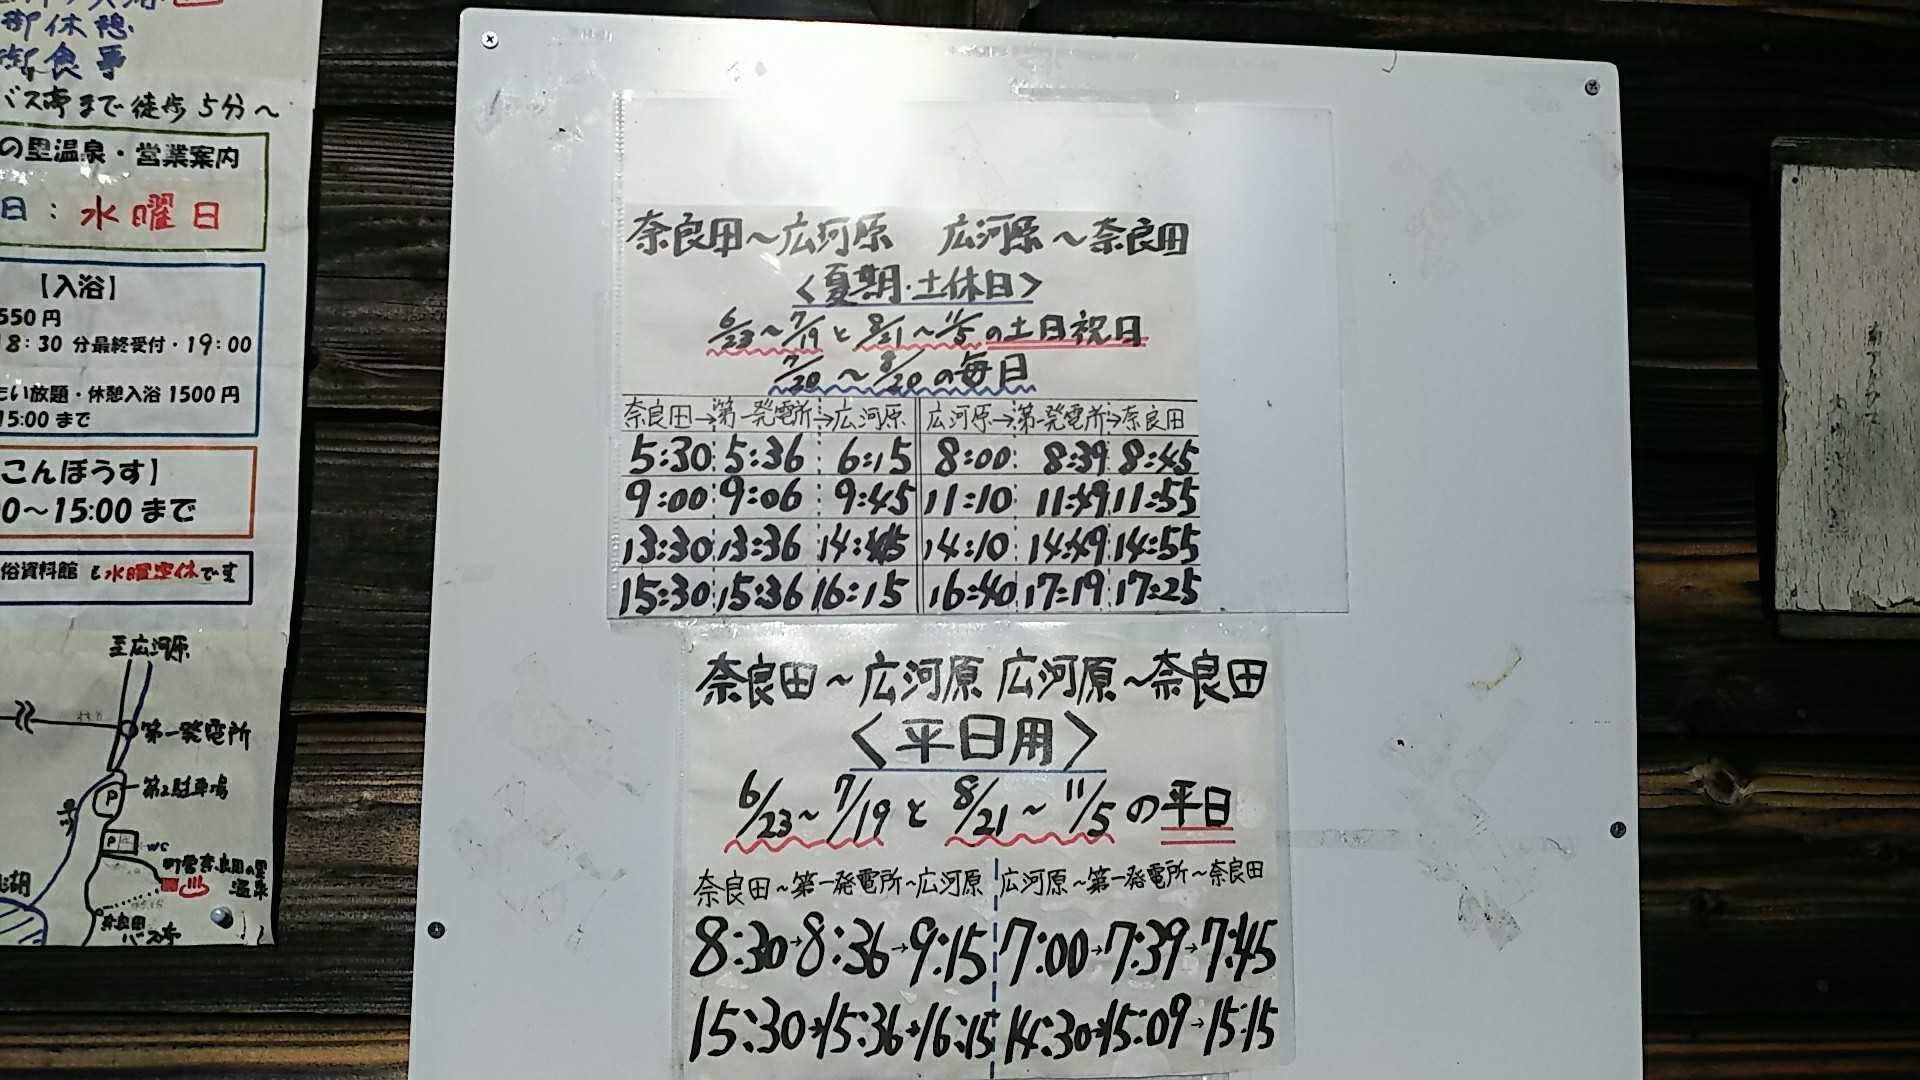 御休憩
御食事
バス亭まで徒歩5分〜
の里温泉・営業案内
日:水曜日
【入浴】
550円
18:30分最終受付・19:00
い放題・休憩入浴1500円
15:00まで
こんぼうす】
0〜15:00まで
俗資料館も水曜定休です
至広河原
第一発電所
第2駐車場
P
P
WC
町営奈良田の里
温泉
湖
奈良田
バス亭
奈良田〜広河原 広河原〜奈良田
<夏期・土休日>
6/23〜7/19と8/21〜11/5の土日祝日
7/20〜8/20の毎日
奈良田→第一発電所→広河原 広河原→第一発電所→奈良田
5:30 5:36 6:15 8:00 8:39 8:45
9:00 9:06 9:45 11:10 11:49 11:55
13:30 13:36 14:15 14:10 14:49 14:55
15:30 15:36 16:15 16:40 17:19 17:25
奈良田〜広河原 広河原〜奈良田
<平日用>
6/23〜7/19と8/21〜11/5の平日
奈良田〜第一発電所〜広河原 広河原〜第一発電所〜奈良田
8:30→8:36→9:15 7:00→7:39→7:45
15:30→15:36→16:15 14:30→15:09→15:15